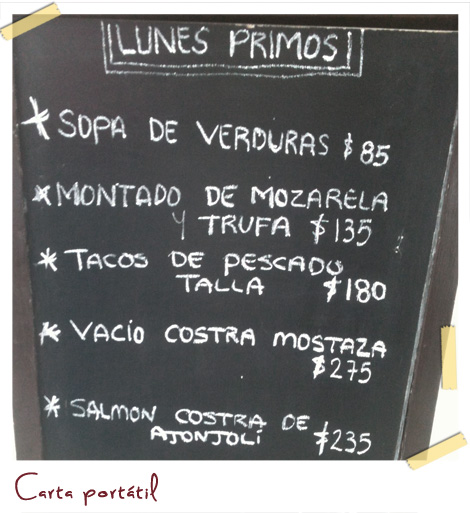 LUNES PRIMOS
* SOPA DE VERDURAS $85
* MONTADO DE MOZARELA
Y TRUFA $135
* TACOS DE PESCADO
TALLA $180
* VACÍO COSTRA MOSTAZA
$275
* SALMON COSTRA DE
AJONJOLÍ $235
Carta portátil